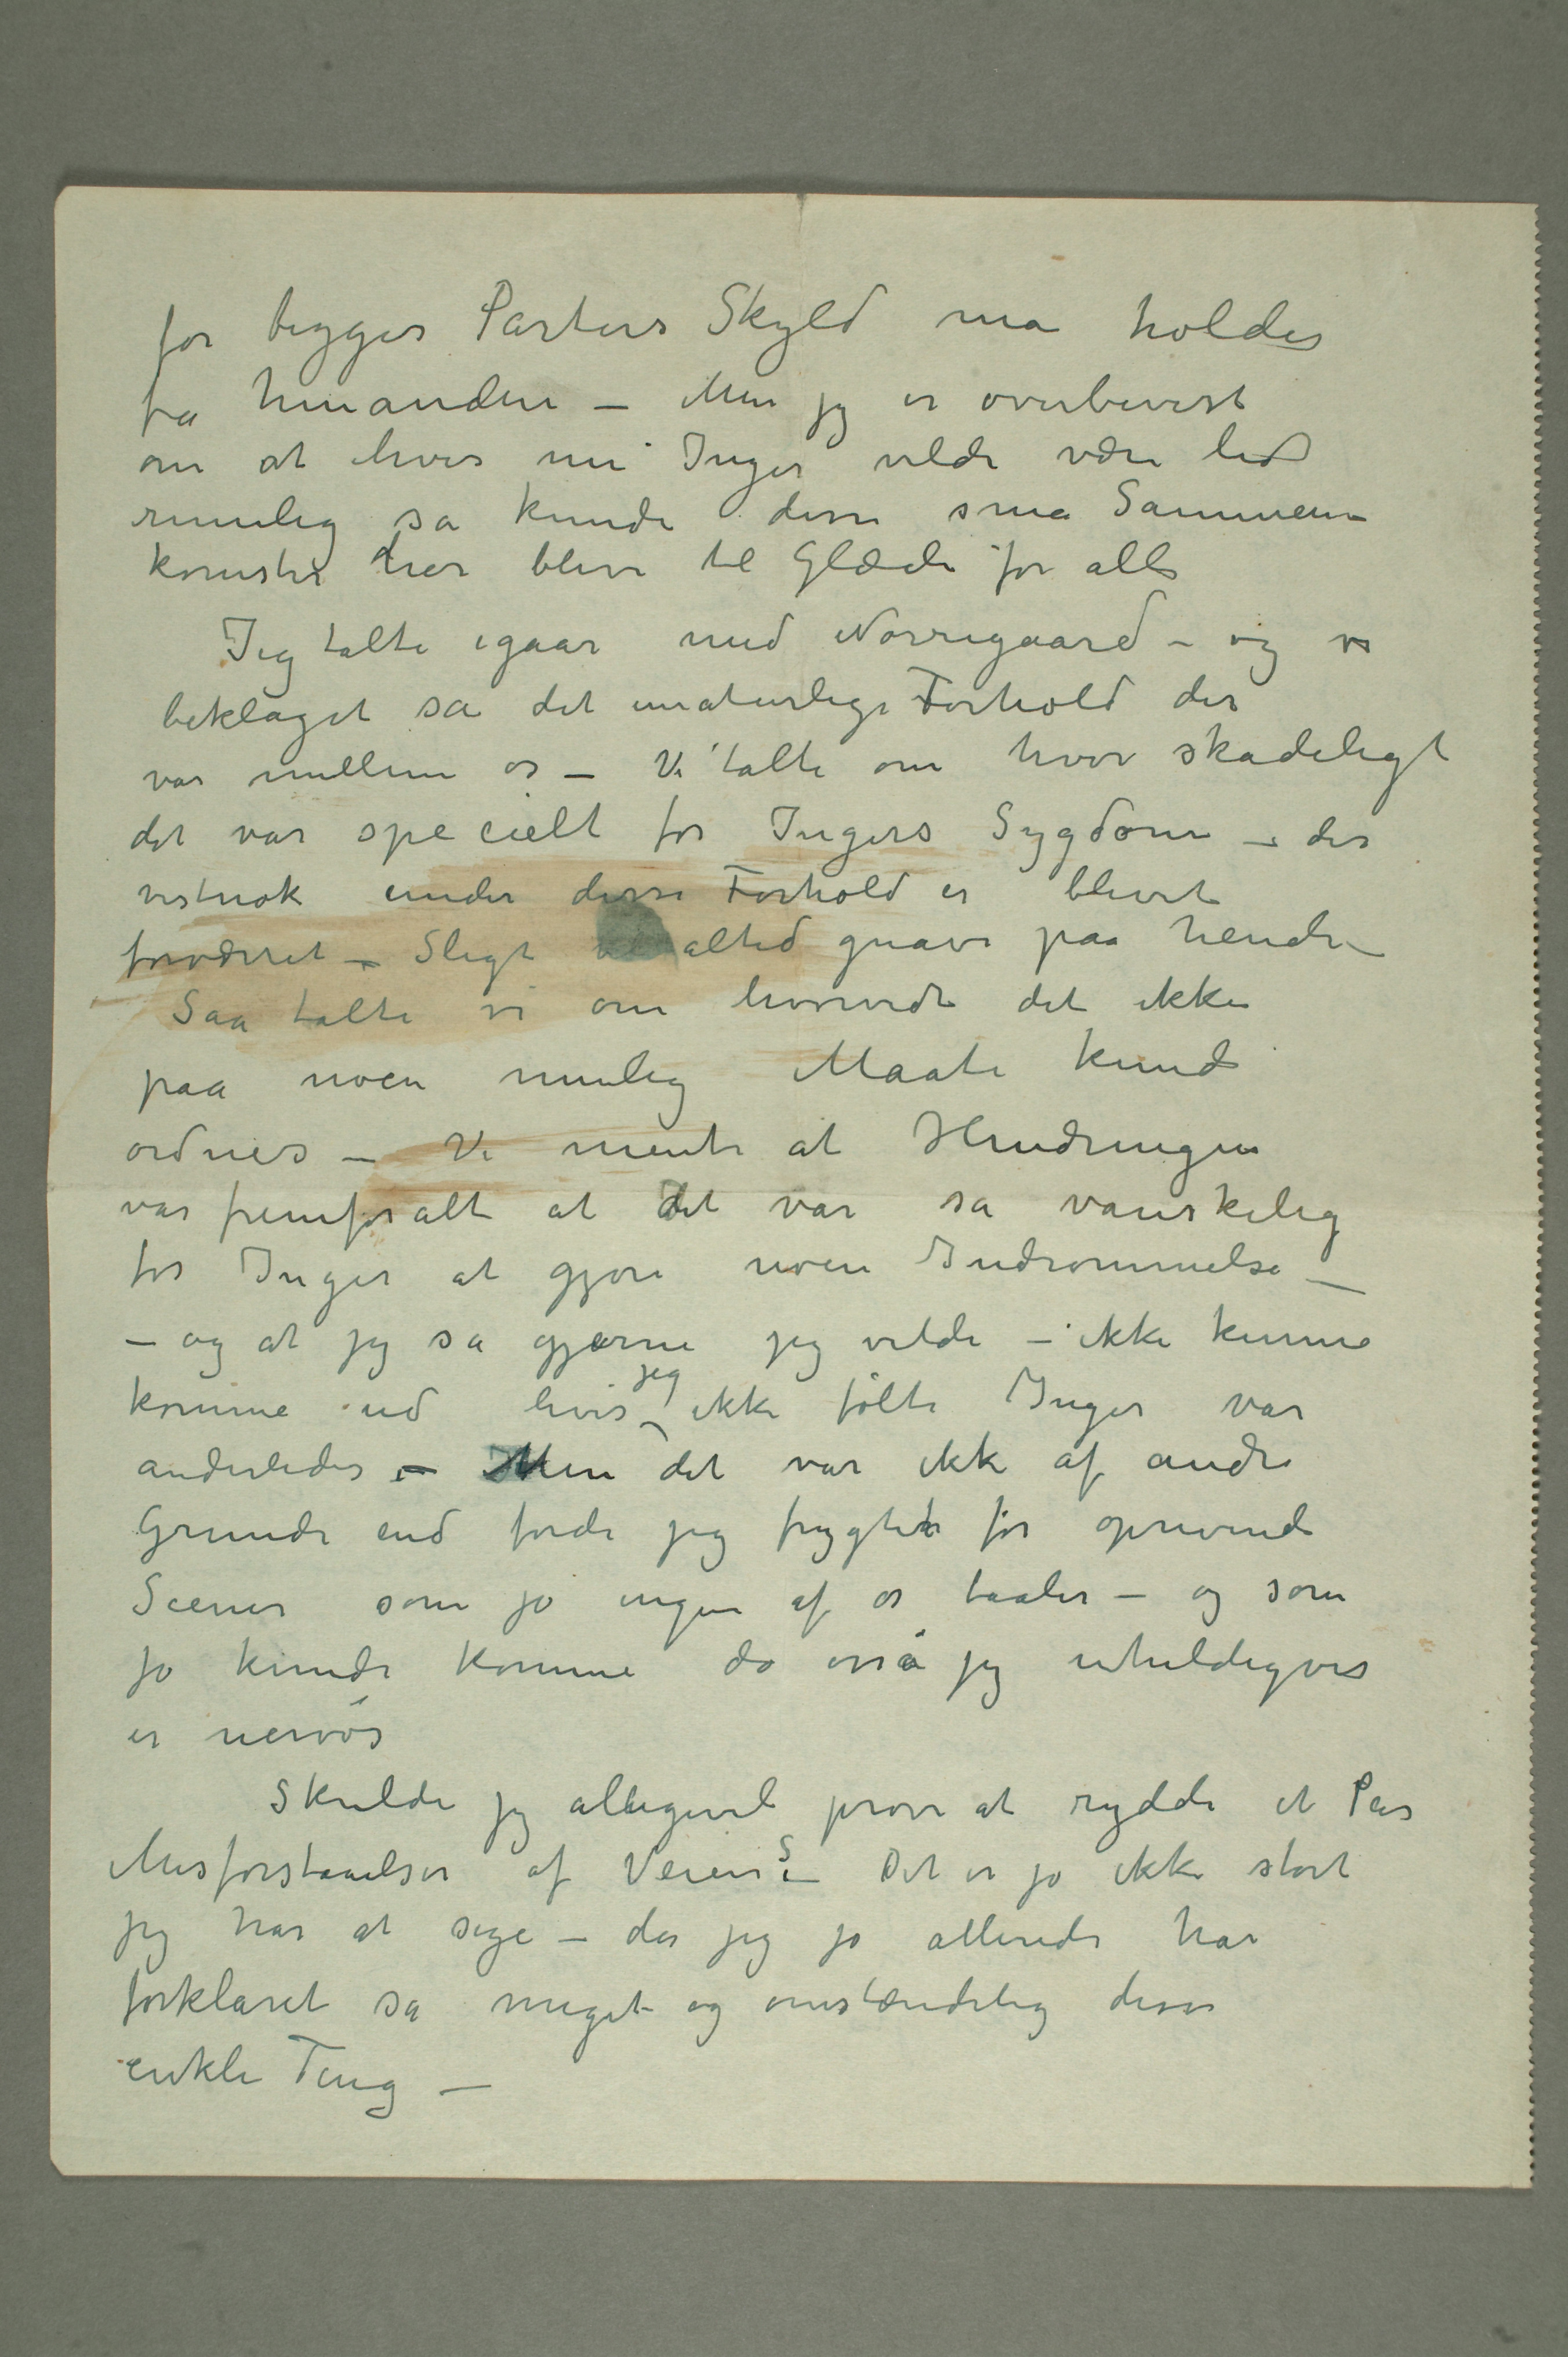 for begges Parters Skyld ma holdes
fra hinanden – Men jeg er overbevist
om at hvis nu Inger vilde være lidt
rimelig sa kunde disse sma Sammen-
komster her blive til Glæde for alle
Jeg talte igaar med Nørregaard – og vi
beklaget sa det unaturlige Forhold der
var mellem os – Vi talte om hvor skadeligt
det var specielt for Ingers Sygdom – der
vistnok under disse Forhold er blevet
forværret – Sligt altid gnave paa hende –
Saa talte vi om hvorvidt det ikke
paa noen mulig Maate kunde
ordnes – Vi mente at Hindringen
var fremforalt at det var sa vanskelig
for Inger at gjøre noen Indrømmelse –
– og at jeg sa gjærne jeg vilde – ikke kunne
komme ud hvis jeg ikke følte Inger var
anderledes – Men det var ikke af andre
Grunde end fordi jeg frygter for oprivende
Scener som jo ingen af os taaler – og som
jo kunde komme da osså jeg uheldigvis
er nervøs
Skulde jeg alligevel prøve at rydde et Par
Misforstaaelser af Veien? – Det er jo ikke stort
jeg har at sige – da jeg jo allerede har
forklaret sa meget og omstændelig disse
enkle Ting –